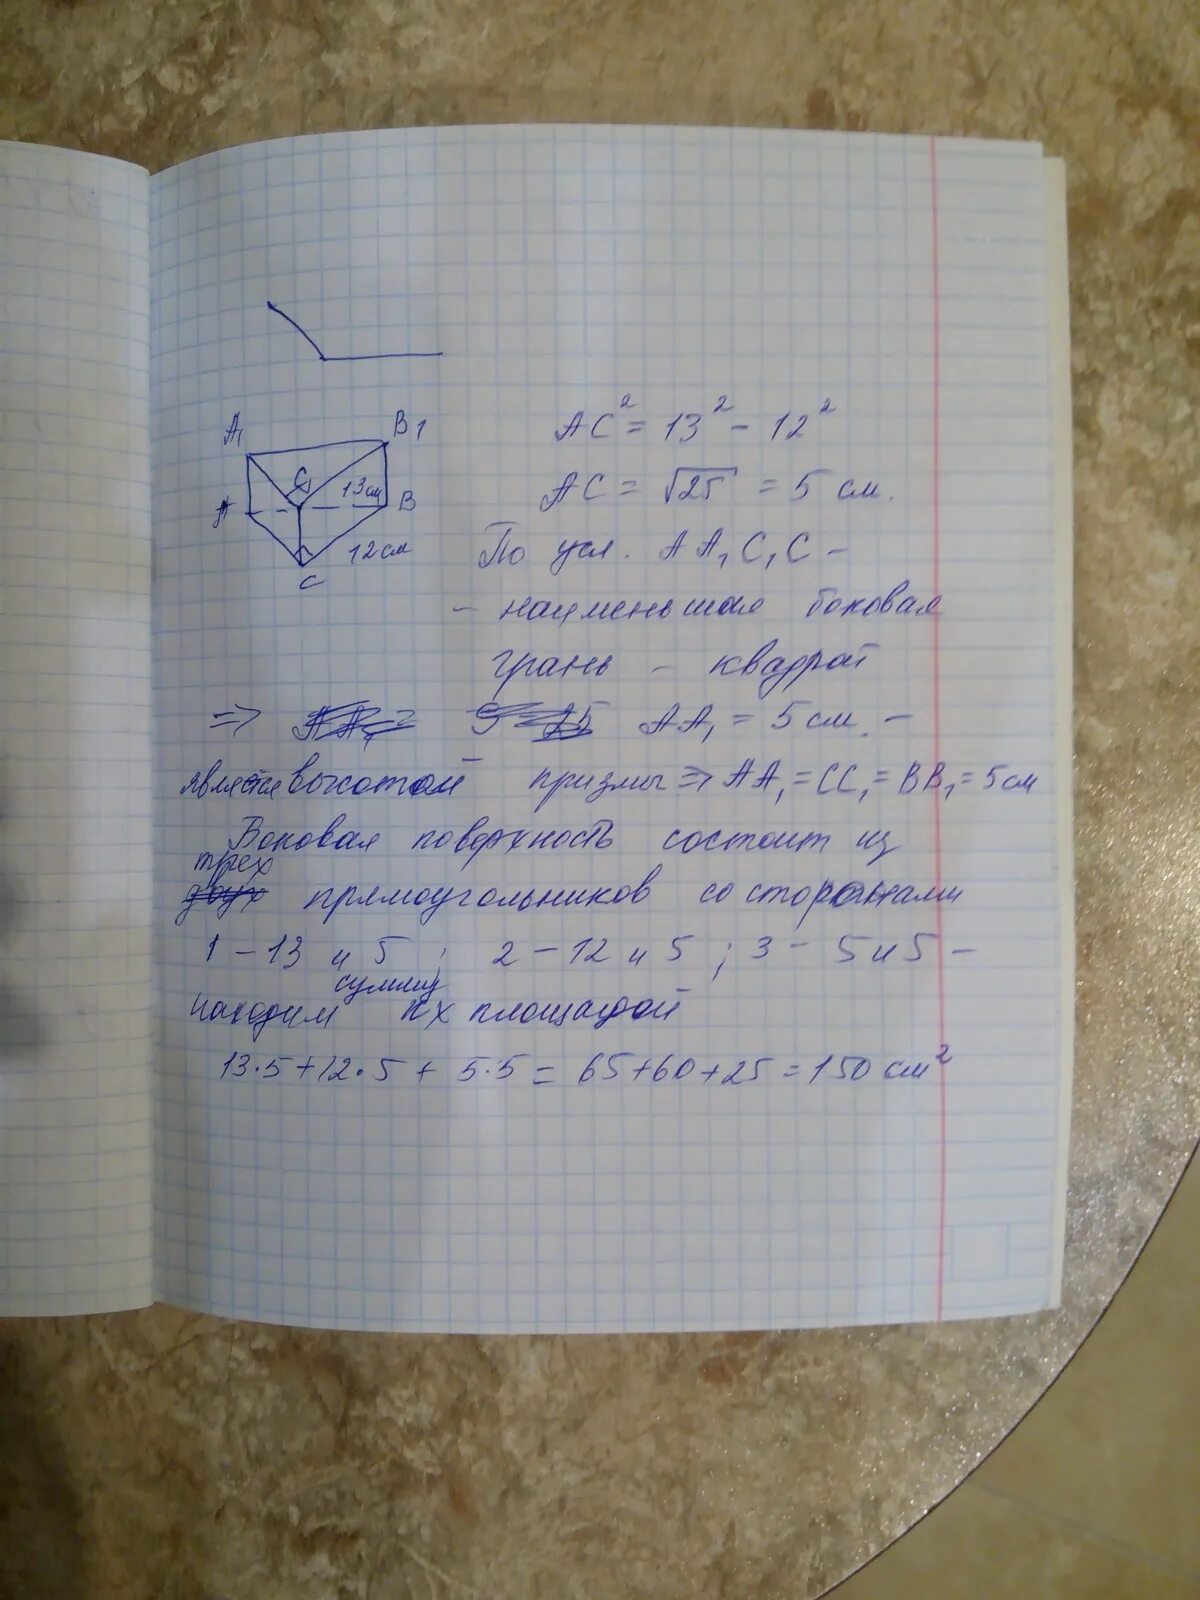 A₁ B1
C₁
13см
A B
12см
C
AC² = 13² - 12²
AC = √25 = 5 см.
По усл. AA₁C₁C -
- наименьшая боковая
грань - квадрат
=> AA₁ = 5 см. -
является высотой призмы => AA₁ = CC₁ = BB₁ = 5 см
Боковая поверхность состоит из
трех
двух прямоугольников со сторонами
1 - 13 и 5 ; 2 - 12 и 5 ; 3 - 5 и 5 -
сумму
находим их площадей
13·5 + 12·5 + 5·5 = 65 + 60 + 25 = 150 см²